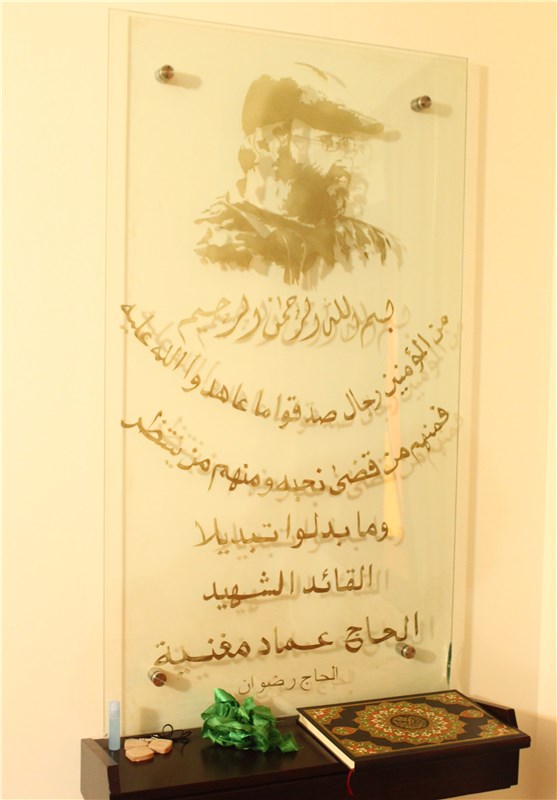 بسم الله الرحمن الرحيم
من المؤمنين رجال صدقوا ما عاهدوا الله عليه
فمنهم من قضى نحبه ومنهم من ينتظر
وما بدلوا تبديلا
القائد الشهيد
الحاج عماد مغنية
الحاج رضوان